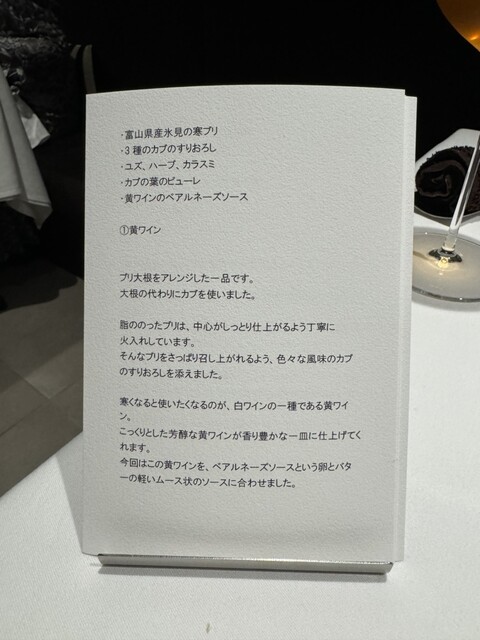 ・富山県産氷見の寒ブリ
・3種のカブのすりおろし
・ユズ、ハーブ、カラスミ
・カブの葉のピューレ
・黄ワインのベアルネーズソース
①黄ワイン
ブリ大根をアレンジした一品です。
大根の代わりにカブを使いました。
脂ののったブリは、中心がしっとり仕上がるよう丁寧に
火入れしています。
そんなブリをさっぱり召し上がれるよう、色々な風味のカブ
のすりおろしを添えました。
寒くなると使いたくなるのが、白ワインの一種である黄ワイ
ン。
こっくりとした芳醇な黄ワインが香り豊かな一皿に仕上げてく
れます。
今回はこの黄ワインを、ベアルネーズソースという卵とバタ
ーの軽いムース状のソースに合わせました。